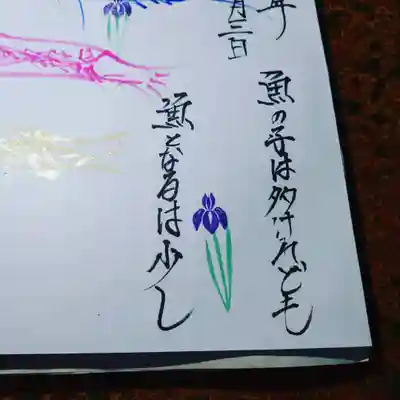 月三日
魚の子は多けれども
魚となるは少し